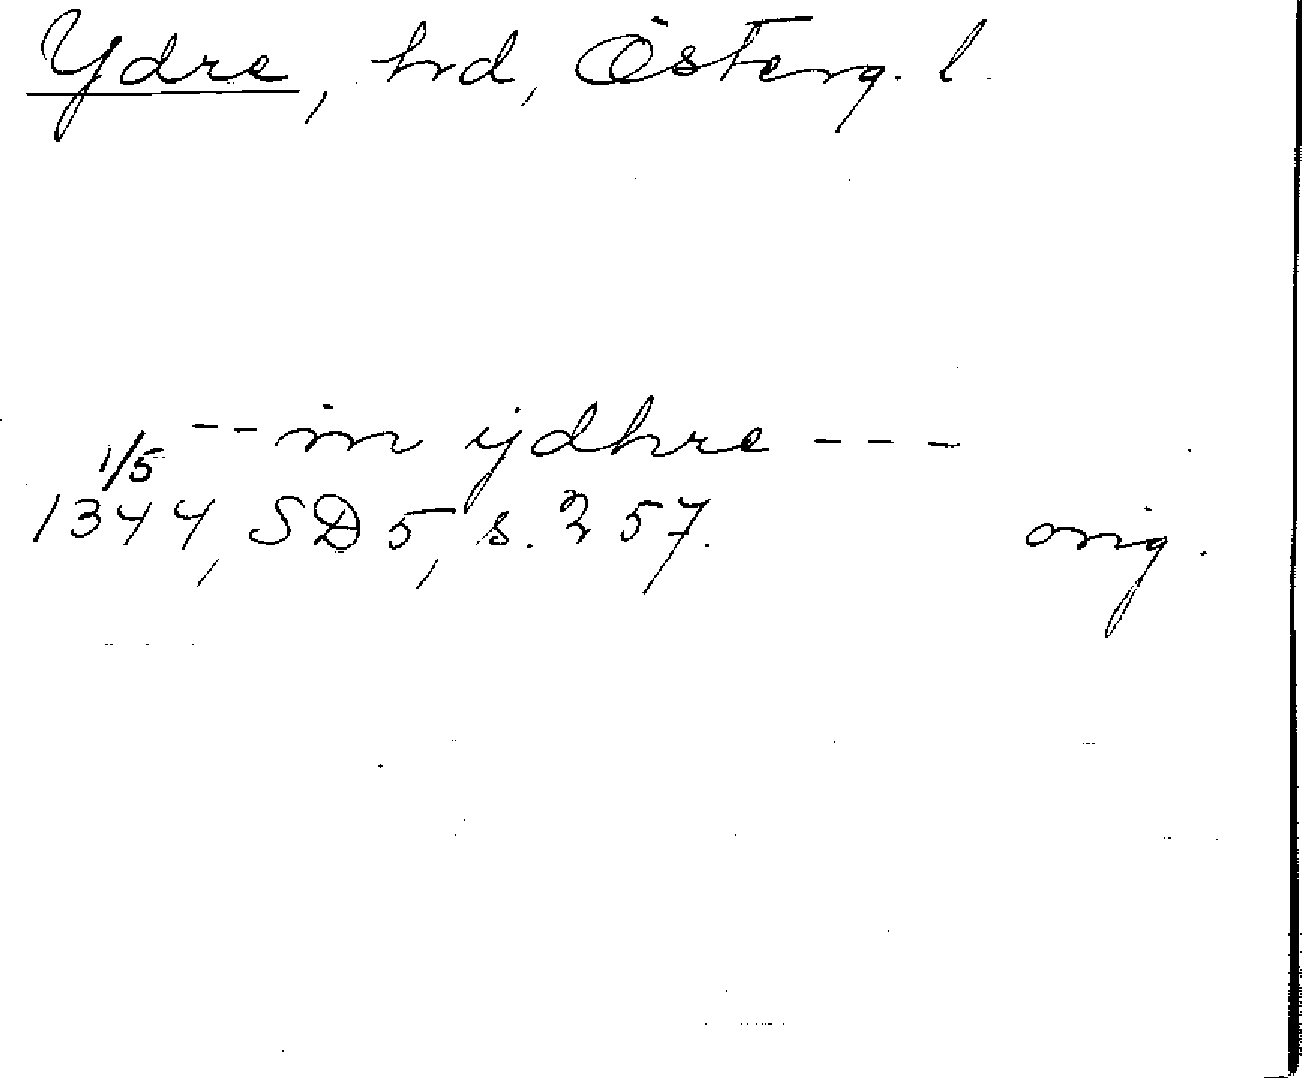 Ydre, hrd, Österg. l.
-- in ydhre ---
1/5
1344, SD 5, s. 257. orig.